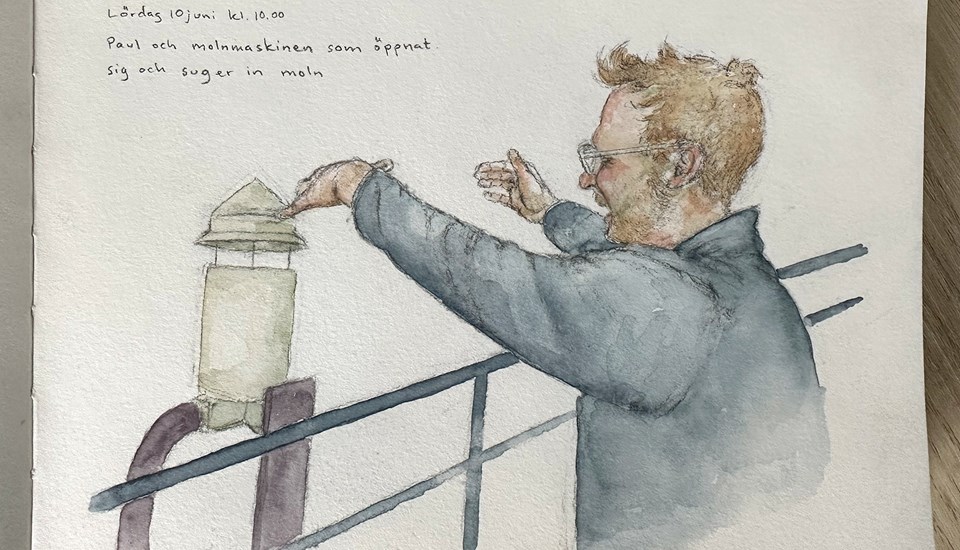 Lördag 10 juni kl. 10.00
Paul och molnmaskinen som öppnat
sig och suger in moln